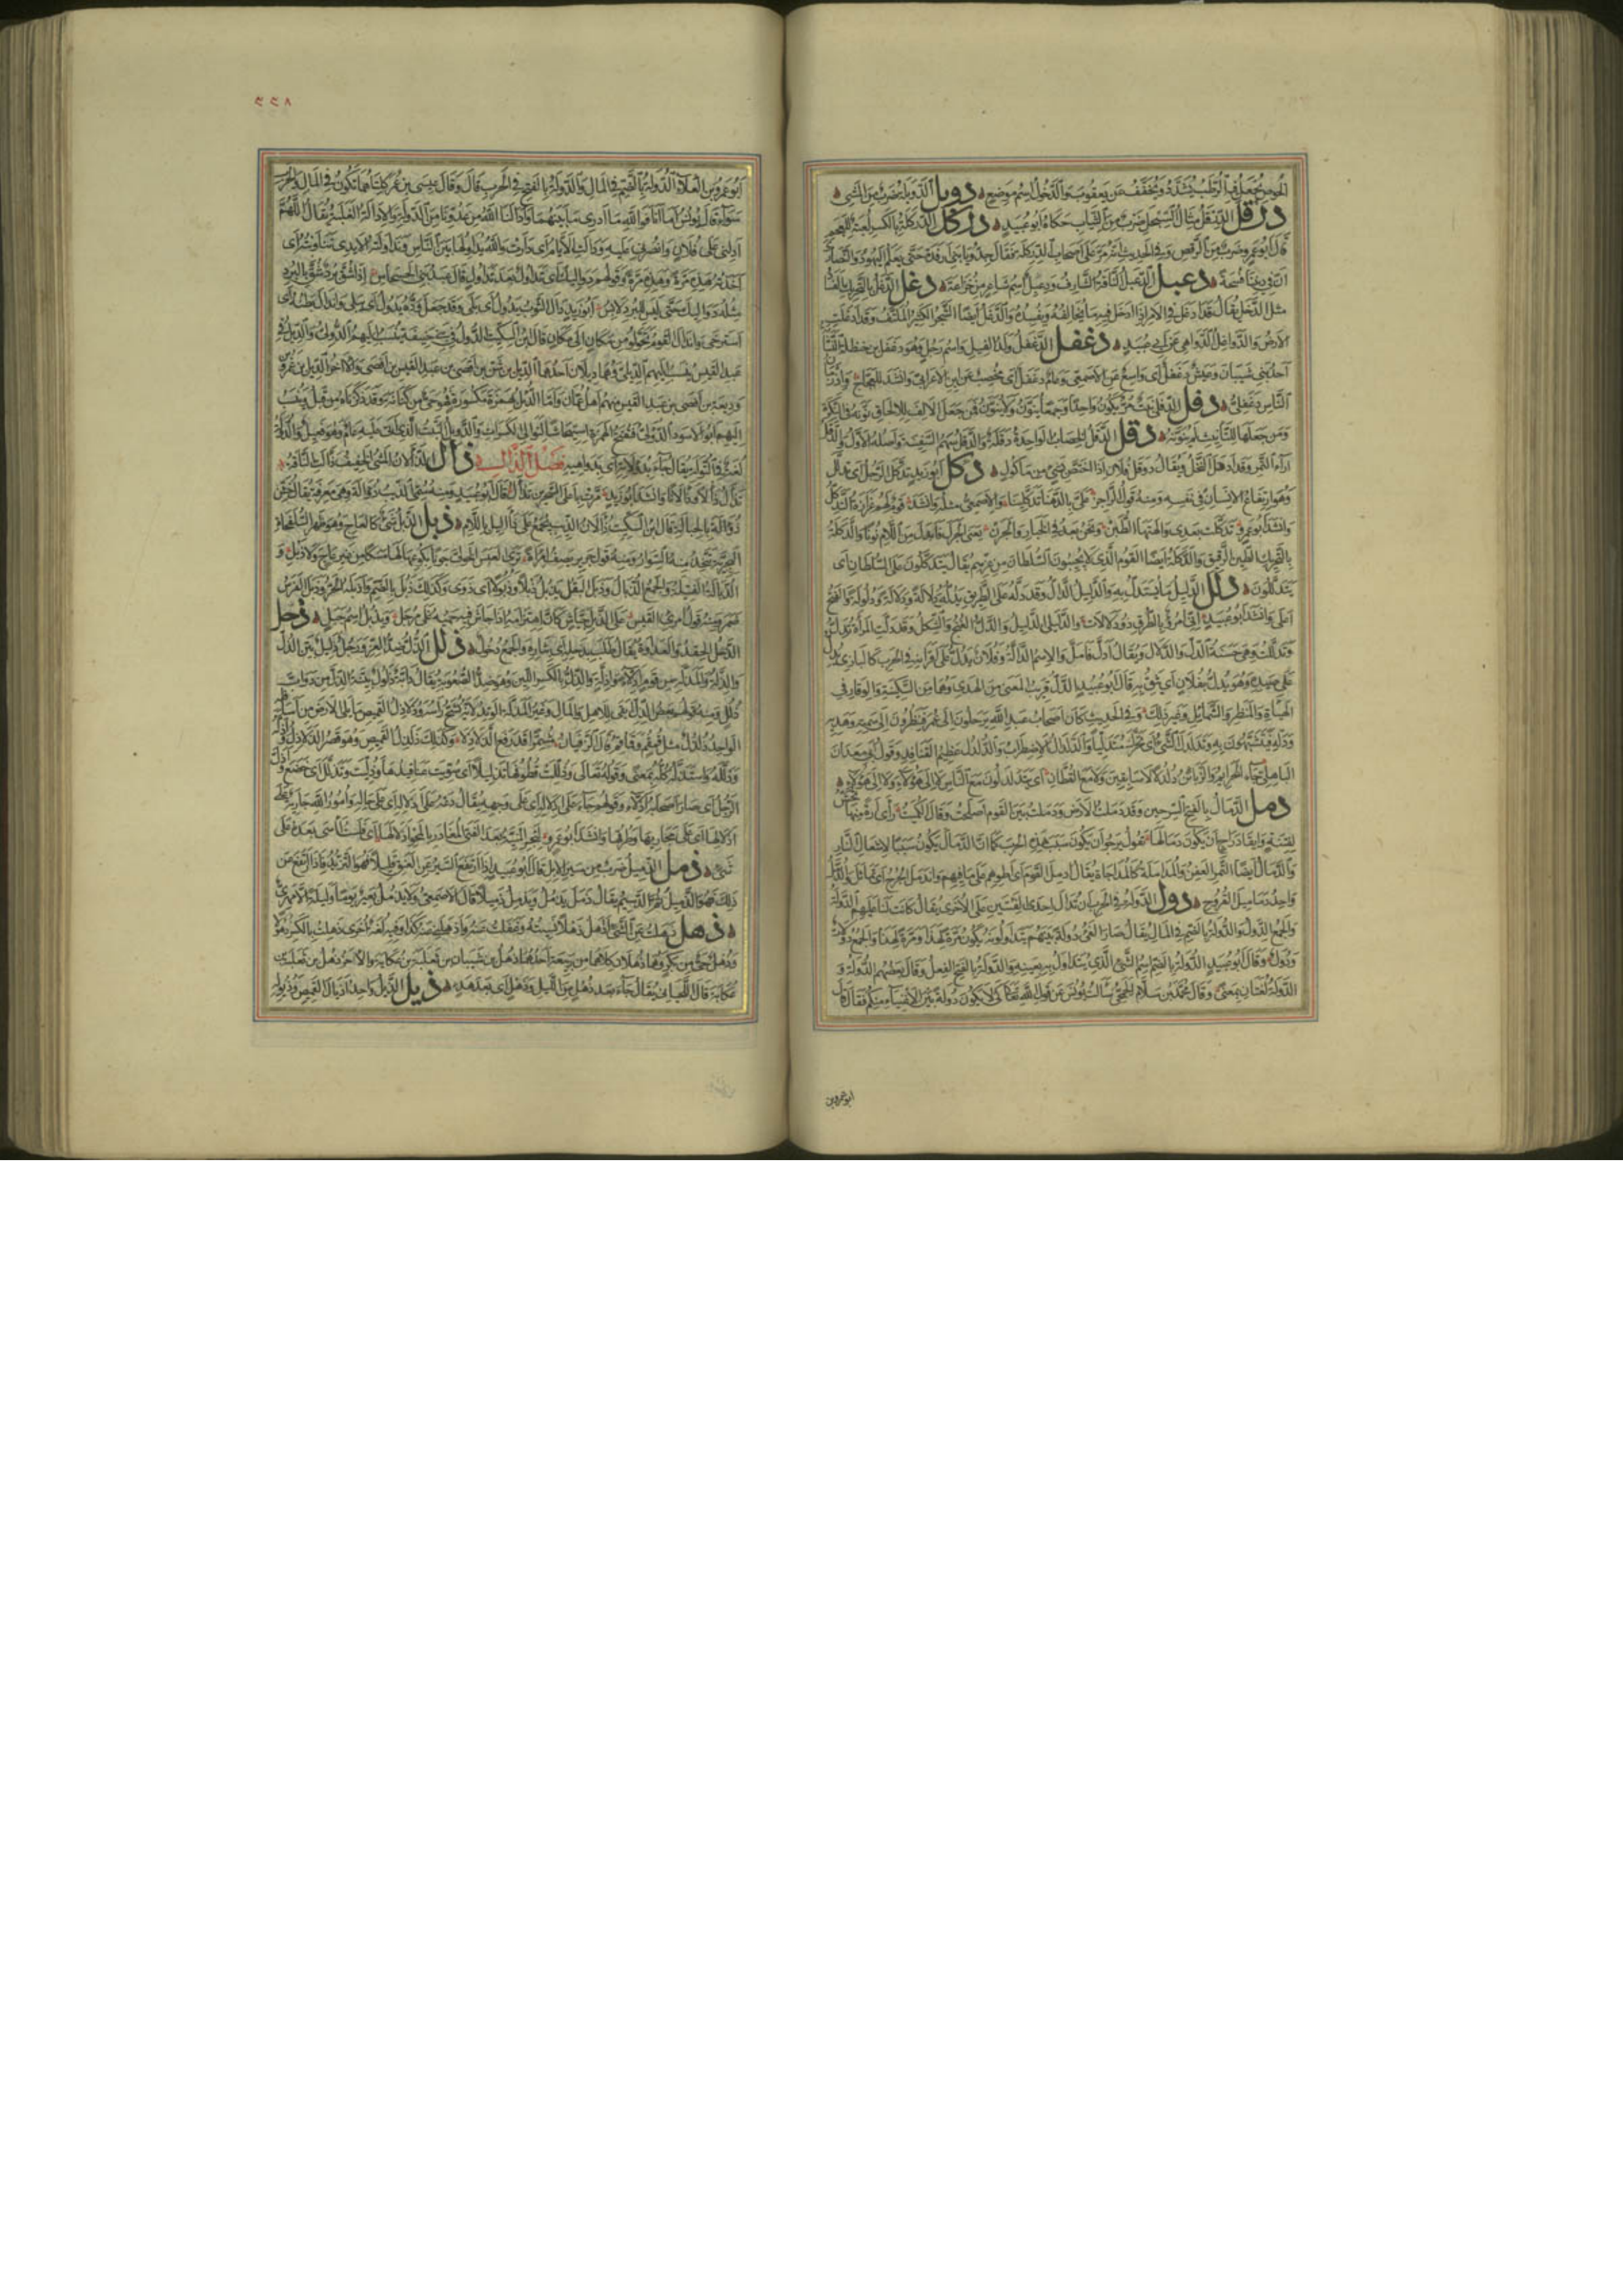 يجعل فيه الرطب يشدد ويخفف عن يعقوب والدخول اسم موضع دوبل الدوبل ضرب من المشي
درقل الدرقل مثال السبحل ضرب من الثياب حكاه ابو عبيد دركل الدركلة بالكسر لعبة للعجم
قال ابو عمرو ضرب من الرقص وفي الحديث انه مر على اصحاب الدركلة فقال جدوا يا بني ارفدة حتى يعلم اليهود والنصارى
ان في ديننا فسحة دعبل الدعبل الناقة الشارف ودعبل اسم شاعر من خزاعة دغل الدغل بالتحريك الفساد
مثل الدخل يقال قد ادغل في الامر اذا ادخل فيه ما يخالفه ويفسده والدغل ايضا الشجر الكثير الملتف وقد ادغلت
الارض والدواغل الدواهي عن ابي عبيد دغفل الدغفل ولد الفيل واسم رجل وهو دغفل بن حنظلة النسابة
احد بني شيبان وعيش دغفل اي واسع عن الاصمعي وعام دغفل اي مخصب عن ابن الاعرابي وانشد للعجاج واذ زمان
الناس دغفلي دفل الدفلى نبت مر يكون واحدا وجمعا ينون ولا ينون فمن جعل الالف للالحاق نونه في النكرة
ومن جعلها للتانيث لم ينونه دقل الدقل الواحدة دقلة والدقل سهم السفينة واصله الاول والدقل
اردأ التمر وقد ادقل النخل ويقال دوقل فلان اذا اختص بشيء من ماكول دكل ابو زيد تدكل الرجل اي تدلل
وهو ارتفاع الانسان في نفسه ومنه قول الراجز علي بالدهنا تدكلينا والاصمعي مثله وانشد قوم لهم عزازة التدكل
وانشد ابو عمرو تدكلت بعدي والهتها الطبن ونحن نعدو في الخبار والجرن يعني الجرل فابدل من اللام نونا والدكلة
بالتحريك الطين الرقيق والدكلة ايضا القوم الذين لا يجيبون السلطان من عزهم يقال يتدكلون على السلطان اي
يتدللون دلل الدليل ما يستدل به والدليل الدال وقد دله على الطريق يدله دلالة ودلالة ودلولة والفتح
اعلى وانشد ابو عبيد اني امرؤ بالطرق ذو دلالات والدليلى الدليل والدل الغنج والشكل وقد دلت المراة تدل
وتدللت وهي حسنة الدل والدلال ويقال ادل فامل والاسم الدالة وفلان يدل على اقرانه في الحرب كالبازي يدل
على صيده وهو يدل بفلان اي يثق به قال ابو عبيد الدل قريب المعنى من الهدي وهما من السكينة والوقار في
الهيئة والمنظر والشمائل وغير ذلك وفي الحديث كان اصحاب عبد الله يرحلون الى عمر فينظرون الى سمته وهديه
ودله فيتشبهون به وتدلدل الشيء اي تحرك متدليا والدلدال الاضطراب والدلدل عظيم القنافذ وقول ابي معدان
الباهلي جاء الحزائم والزبائن دلدلا لا سابقين ولا مع القطان اي يتدلدلون مع الناس لا الى هؤلاء ولا الى هؤلاء
دمل الدمال بالفتح السرجين وقد دملت الارض ودملت بين القوم اصلحت وقال الكميت راى ارة منها تحش
لفتنة وايقاد راج ان يكون دمالها يقول يرجو ان يكون سبب هذه الحرب كما ان الدمال يكون سببا لاشعال النار
والدمال ايضا التمر العفن والمداملة كالمداجاة يقال ادمل القوم اي اطوهم على ما فيهم واندمل الجرح اي تماثل والدمل
واحد دماميل القروح دول الدولة في الحرب ان تدال احدى الفئتين على الاخرى يقال كانت لنا عليهم الدولة
والجمع الدول والدولة بالضم في المال يقال صار الفيء دولة بينهم يتداولونه يكون مرة لهذا ومرة لهذا والجمع دولات
ودول وقال ابو عبيد الدولة بالضم اسم الشيء الذي يتداول به بعينه والدولة بالفتح الفعل وقال بعضهم الدولة و
الدولة لغتان بمعنى وقال محمد بن سلام الجمحي سالت يونس عن قول الله تعالى كيلا يكون دولة بين الاغنياء منكم فقال قال
ابو عمرو بن
٢٢٨
ابو عمرو بن العلاء الدولة بالضم في المال والدولة بالفتح في الحرب قال وقال عيسى بن عمر كلتاهما تكون في المال والحرب
سواء قال يونس اما انا فوالله ما ادري ما بينهما وادالنا الله من عدونا من الدولة والادالة الغلبة يقال اللهم
ادلني على فلان وانصرني عليه ودالت الايام اي دارت والله يداولها بين الناس وتداولته الايدي اي
اخذته هذه مرة وهذه مرة وقولهم دواليك اي تداول بعد تداول قال عبد بني الحسحاس اذا شق برد شق بالبرد
مثله دواليك حتى ليس للبرد لابس ابو زيد دال الثوب يدول اي بلي وقد جعل وده يدول اي يبلى واندال بطنه اي
استرخى واندال القوم تحولوا من مكان الى مكان قال ابن السكيت الدول في حنيفة ينسب اليهم الدولي والديل في
عبد القيس ينسب اليهم الديلي وهما ديلان احدهما الديل بن شن بن افصى بن عبد القيس بن افصى والاخر الديل بن عمرو
بن وديعة بن افصى بن عبد القيس منهم اهل عمان واما الدئل بهمزة مكسورة فهو حي من كنانة وقد ذكرناه من قبل وينسب
اليهم ابو الاسود الدؤلي فتفتح الهمزة استيحاشا لتوالي الكسرات والدويل النبت الذي اتى عليه عام وهو فعيل والدولة
لغة في التولة يقال جاء بدولاته اي بدواهيه فصل الذال ذأل الذألان المشي الخفيف ذالت الناقة
تذال ذالا وذالانا وانشد ابو زيد مرت باعلى السحرين تذال قال ابو عبيد ومنه سمي الذئب ذؤالة وهي معرفة يقال خش
ذؤالة بالحبالة قال ابن السكيت ذألان الذئب يجمع على ذآليل باللام ذبل الذبل شيء كالعاج وهو ظهر السلحفاة
البحرية يتخذ منه السوار ومنه قول جرير يصف امراة ترى العبس الحولي جونا بكوعها لها مسكا من غير عاج ولا ذبل و
الذبالة الفتيلة والجمع الذبال وذبل البقل يذبل ذبلا وذبولا اي ذوى وكذلك ذبل بالضم واذبله الحر وذبل الفرس
ضمر ومنه قول امرئ القيس على الذبل جياش كان اهتزامه اذا جاش فيه حميه غلي مرجل ويذبل اسم جبل ذحل
الذحل الحقد والعداوة يقال طلب بذحله اي بثاره والجمع ذحول ذلل الذل ضد العز ورجل ذليل بين الذل
والذلة والمذلة من قوم اذلاء واذلة والذل بالكسر اللين وهو ضد الصعوبة يقال دابة ذلول بينة الذل من دواب
ذلل ومنه قولهم بعض الذل ابقى للاهل والمال وعير المذلة الوتد لانه يشج راسه وذلاذل القميص ما يلي الارض من اسافله
الواحد ذلذل مثل قمقم وقماقم قال الزفيان مشمرا قد رفع الذلاذلا وكذلك ذلذل القميص وهو قصر الذلاذل واذله
وذلله واستذله كله بمعنى وقوله تعالى وذللت قطوفها تذليلا اي سويت عناقيدها وذليت وتذلل اي خضع واذل
الرجل اي صار اصحابه اذلاء وقولهم جاء على اذلاله اي على وجهه يقال دعه على اذلاله اي على حاله وامور الله جارية على
اذلالها اي على مجاريها وطرقها وانشد ابو عمرو لتجر المنية بعد الفتى المغادر بالمحو اذلالها اي فلست آسى بعده على
شيء ذمل الذميل ضرب من سير الابل قال ابو عبيد اذا ارتفع السير عن العنق قليلا فهو التزيد فاذا ارتفع عن
ذلك فهو الذميل ثم الرسيم يقال ذمل يذمل ويذمل ذميلا قال الاصمعي ولا يذمل بعير يوما وليلة الا مهري
ذهل ذهلت عن الشيء اذهل ذهلا نسيته وغفلت عنه واذهلني عنه كذا وفيه لغة اخرى ذهلت بالكسر ذهولا
وذهل حي من بكر وهما ذهلان كلاهما من ربيعة احدهما ذهل بن شيبان بن ثعلبة بن عكابة والاخر ذهل بن ثعلبة بن
عكابة قال اللحياني يقال جاء بعد ذهل من الليل ودهل اي بعد هدء ذيل الذيل واحد اذيال القميص وذيوله